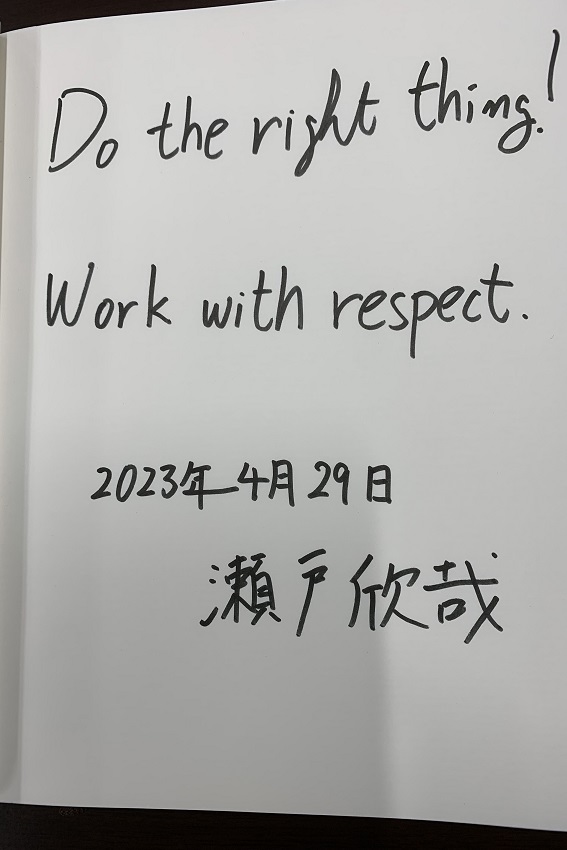 Do the right thing!
Work with respect.
2023年4月29日
瀬戸欣哉